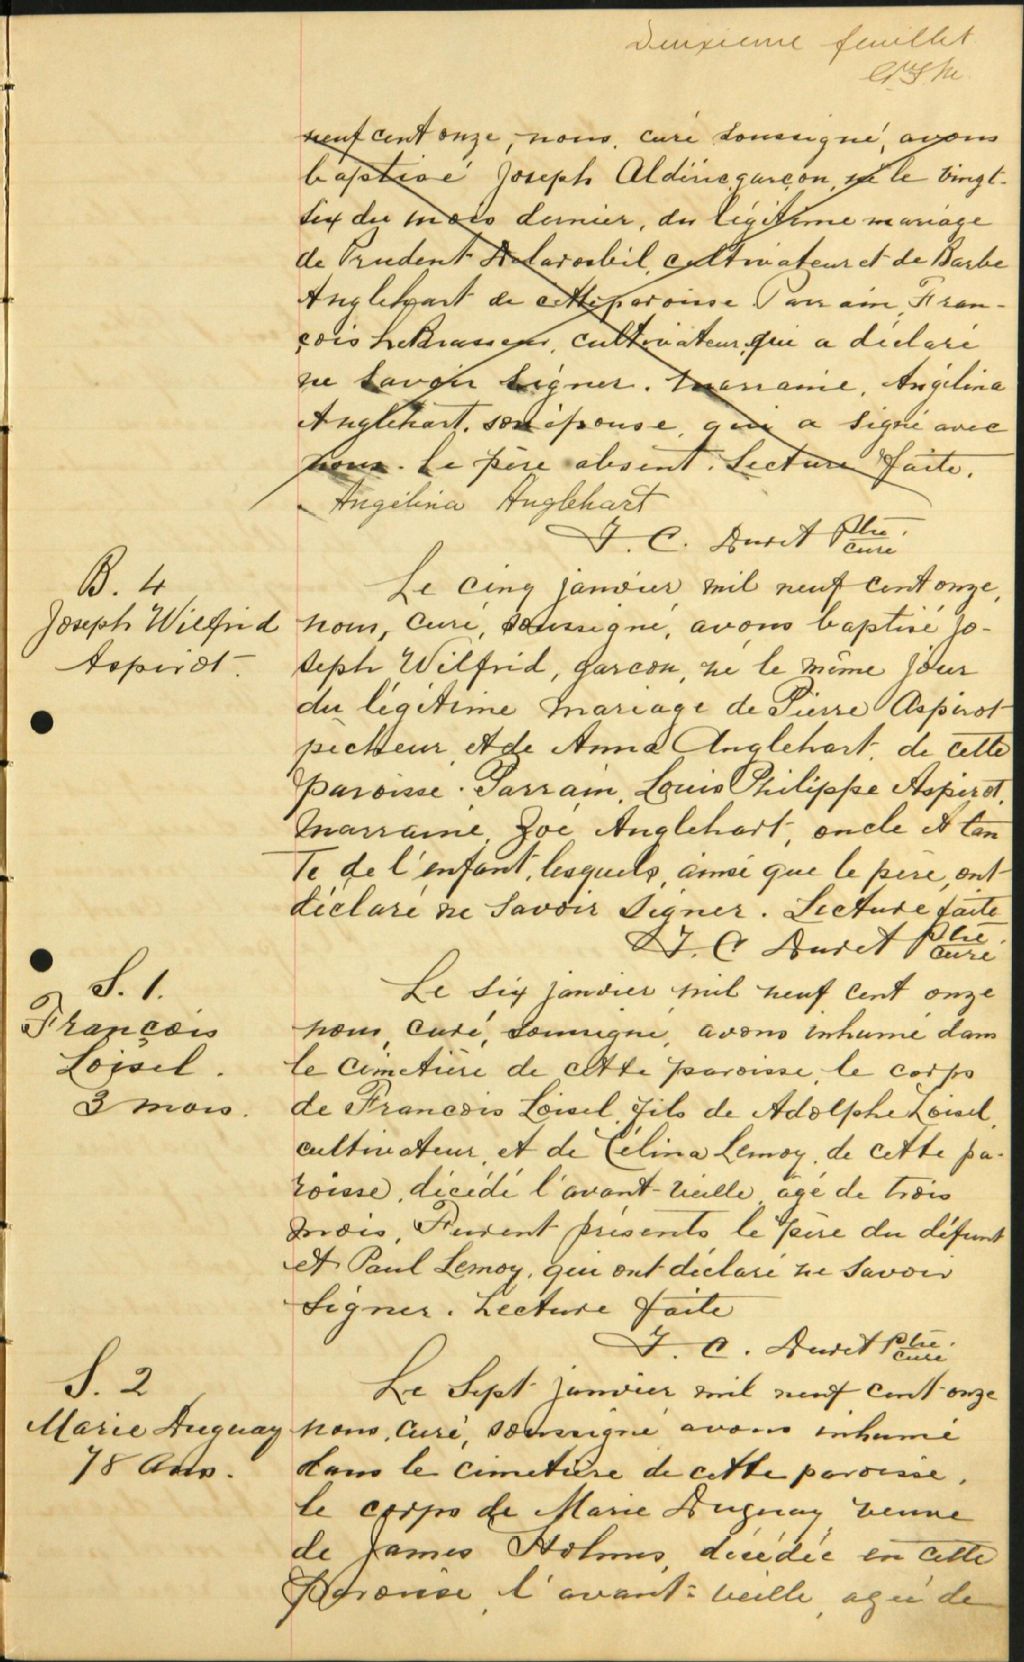 Deuxieme feuillet
neuf cent onze, nous, curé soussigné, avons
baptisé Joseph Aldéric, garçon, né le vingt-
six du mois dernier, du légitime mariage
de Prudent Delarosbil, cultivateur et de Barbe
Anglehart de cette paroisse. Parrain, Fran-
çois LeBrasseur, cultivateur, qui a déclaré
ne savoir signer. Marraine, Angélina
Anglehart, son épouse, qui a signé avec
nous. Le père absent. Lecture faite.
Angélina Anglehart
J. C. Duret Ptre. curé
B. 4
Joseph Wilfrid
Aspirot.
Le cinq janvier mil neuf cent onze,
nous, curé, soussigné, avons baptisé Jo-
seph Wilfrid, garcon, né le même jour
du légitime mariage de Pierre Aspirot
pêcheur, et de Anna Anglehart, de cette
paroisse. Parrain, Louis Philippe Aspirot,
Marraine, Zoé Anglehart, oncle et tan
te de l'enfant, lesquels, ainsi que le père, ont
déclaré ne savoir signer. Lecture faite
J. C Duret Ptre. curé
S. 1.
François
Loisel.
3 mois.
Le six janvier mil neuf cent onze
nous, curé, soussigné, avons inhumé dans
le cimetière de cette paroisse, le corps
de François Loisel, fils de Adolphe Loisel,
cultivateur, et de Célina Lemoy, de cette pa-
roisse, décédé l'avant-veille, âgé de trois
mois. Furent présents le père du défunt
et Paul Lemoy, qui ont déclaré ne savoir
signer. Lecture faite
J. C. Duret Ptre. curé
S. 2
Marie Duguay
78 Ans.
Le Sept janvier mil neuf cent onze
nous, curé, soussigné avons inhumé
dans le cimetière de cette paroisse,
le corps de Marie Duguay, veuve
de James Holmes, décédée en cette
paroisse, l'avant-veille, agée de